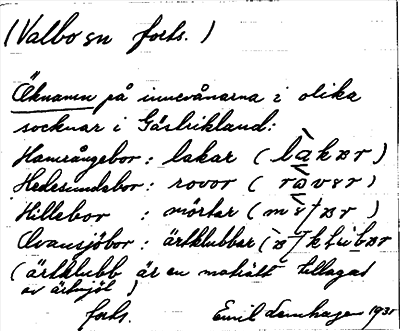 (Valbo sn forts.)
Öknamn på innevånarna i olika
socknar i Gästrikland:
Hamrångebor: lakar (
Hedesundabor: rovor (
Hillebor : mörtar (
Ovansjöbor: ärtklubbar (
(ärtklubb är en maträtt tillagad
av ärtmjöl)
forts. Emil 1931